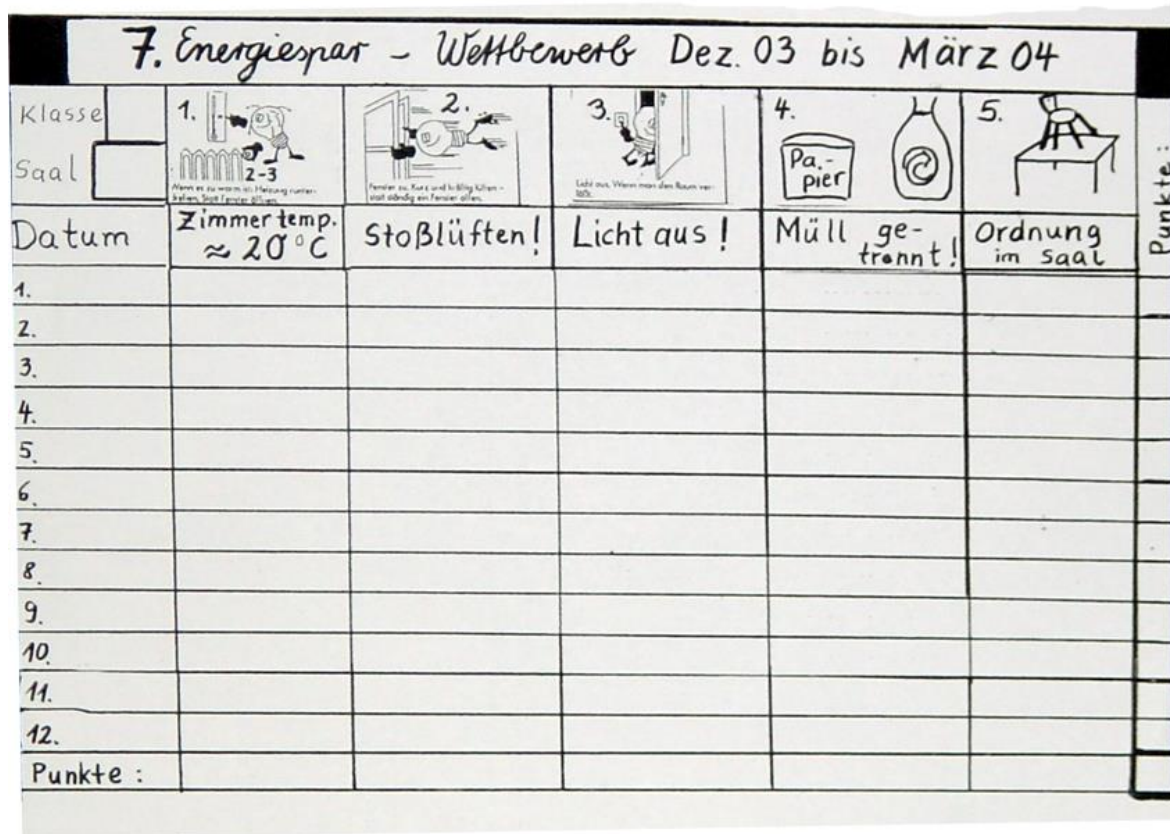 7. Energiespar - Wettbewerb Dez. 03 bis März 04
Klasse
Saal
1.
2-3
Wenn es zu warm ist: Heizung runter-
drehen, statt Fenster öffnen.
2.
Fenster zu. Kurz und kräftig lüften -
statt ständig ein Fenster offen.
3.
Licht aus, Wenn man den Raum ver-
läßt.
4.
Pa-
pier
5.
Punkte:
Datum
Zimmertemp.
≈ 20°C
Stoßlüften!
Licht aus!
Müll ge-
trennt!
Ordnung
im Saal
1.
2.
3.
4.
5.
6.
7.
8.
9.
10.
11.
12.
Punkte: